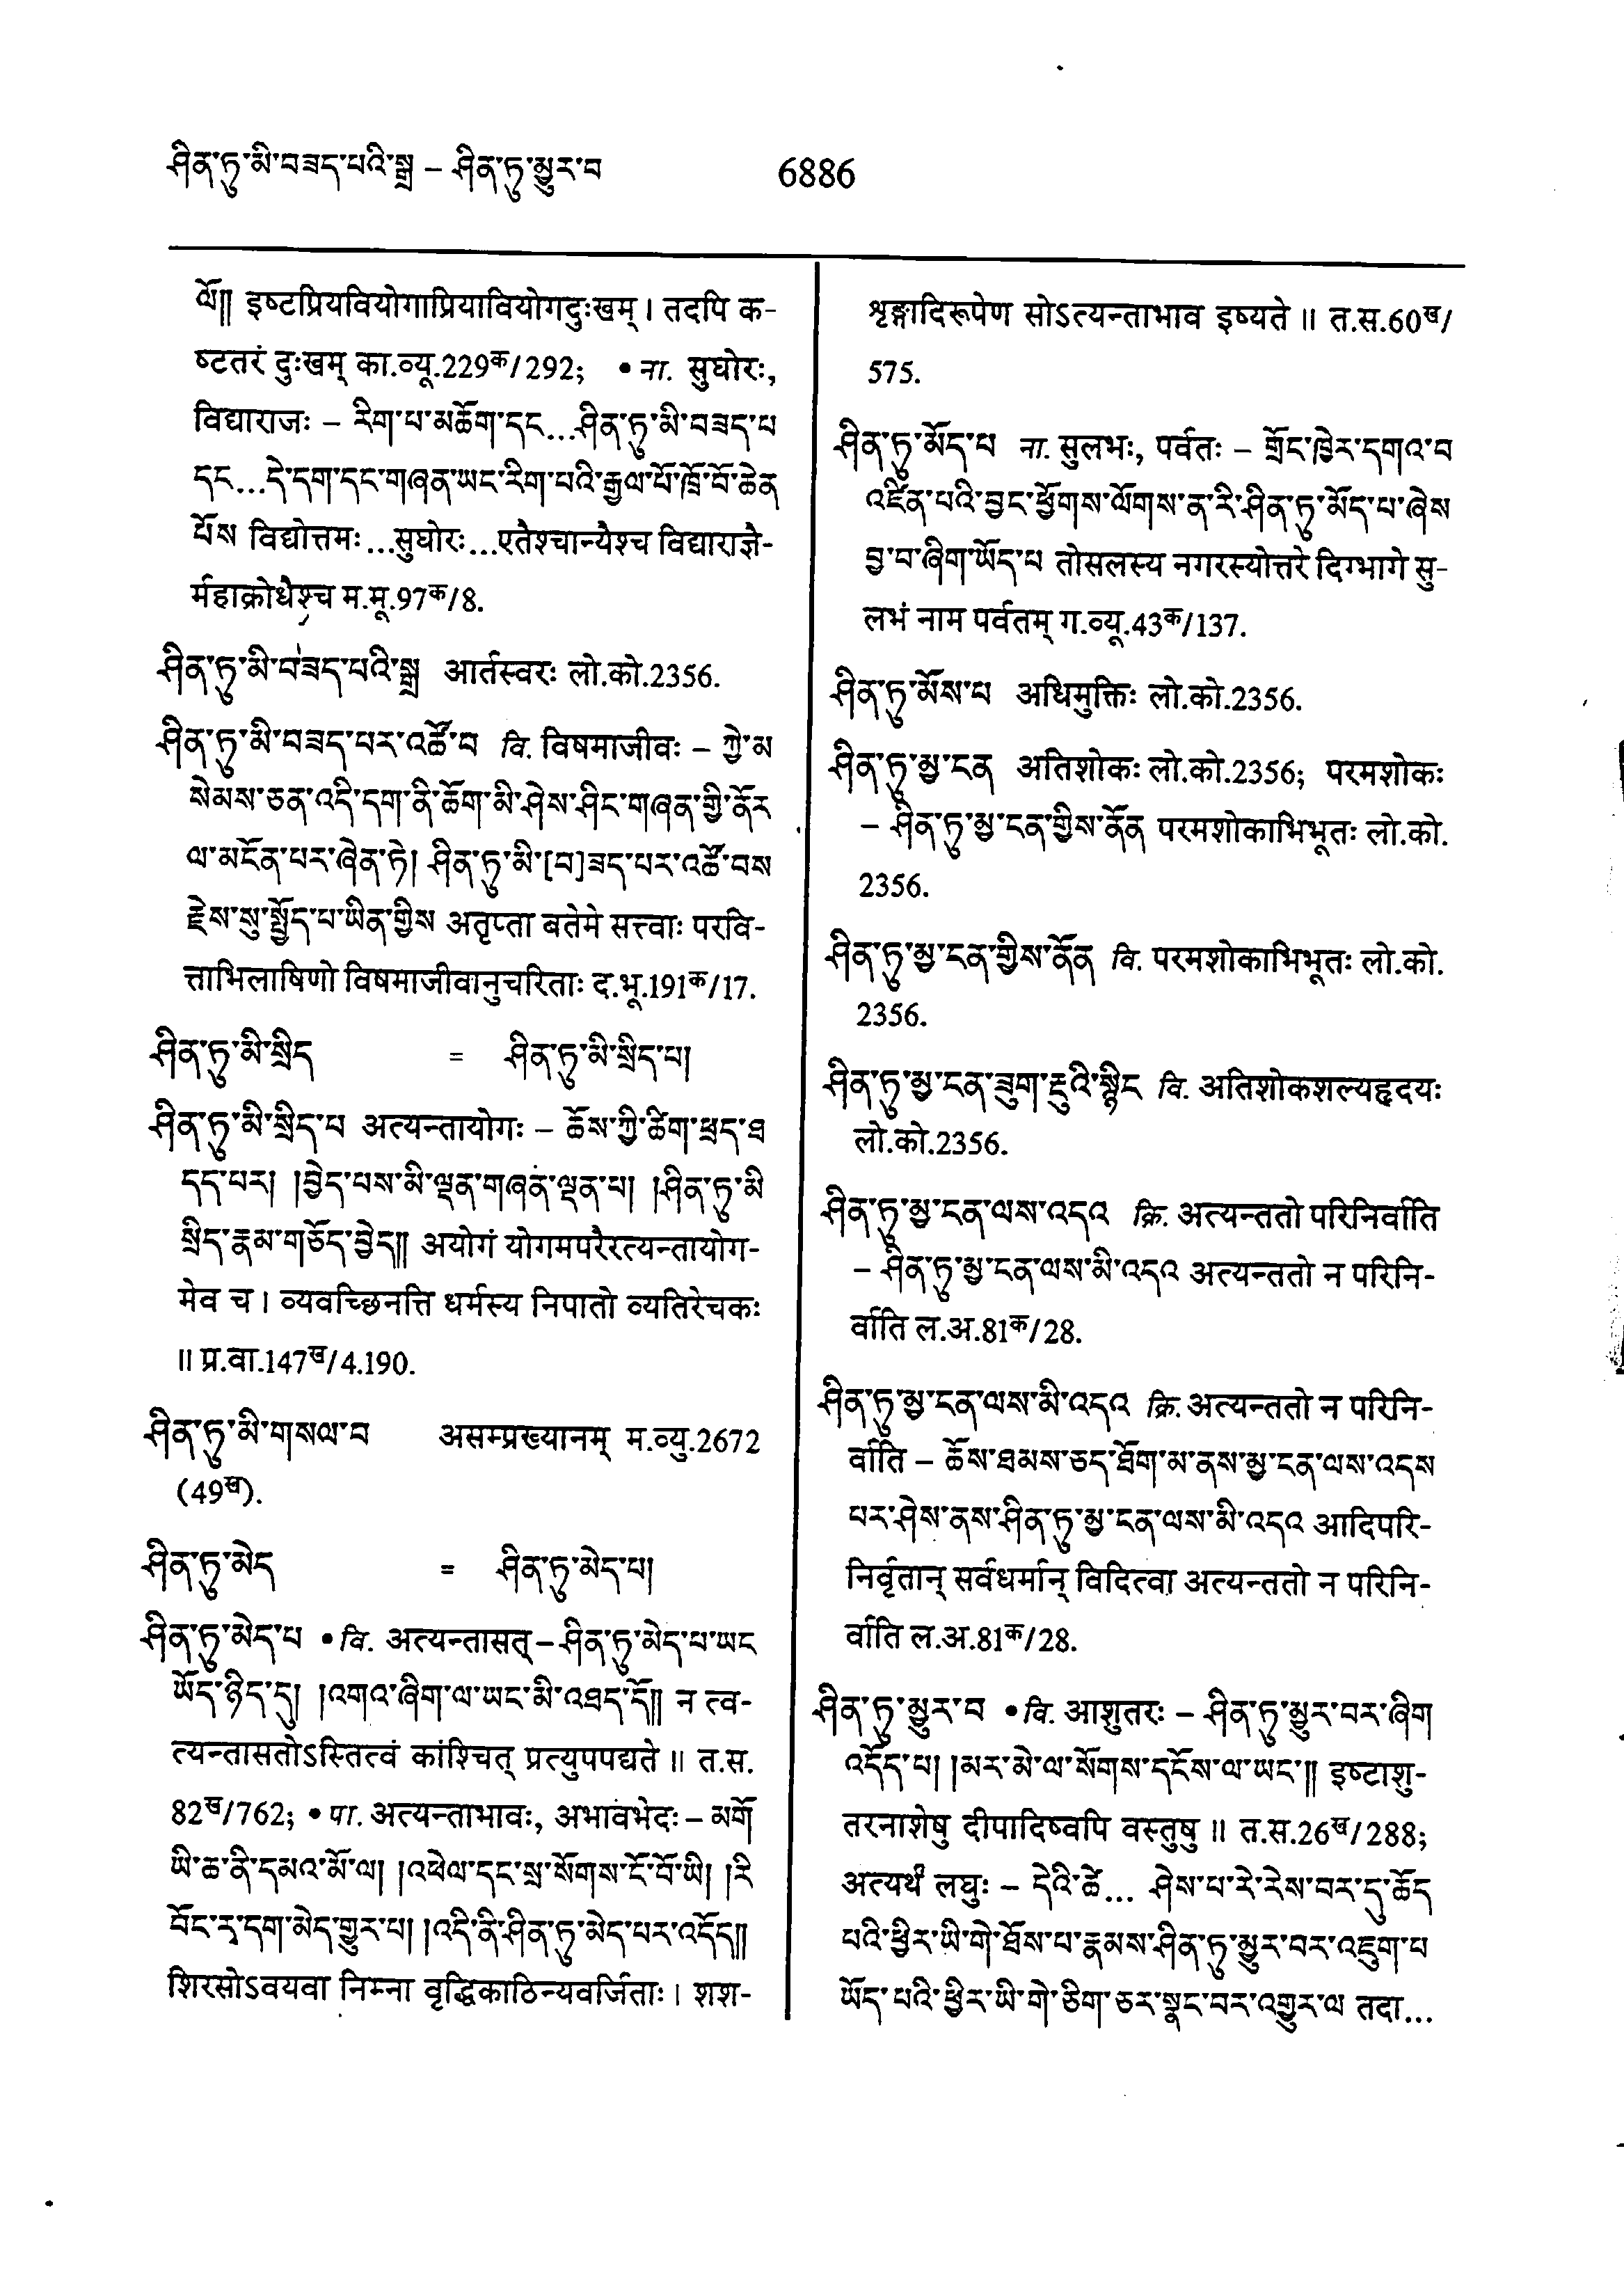 ཤིན་ཏུ་མི་བཟད་པའི་སྒྲ – ཤིན་ཏུ་མྱུར་བ
6886
ལོ༎ इष्टप्रियवियोगाप्रियावियोगदुःखम्। तदपि क-
ष्टतरं दुःखम् का.व्यू.229क/292; • ना. सुघोरः,
विद्याराजः – རིག་པ་མཆོག་དང...ཤིན་ཏུ་མི་བཟད་པ
དང...དེ་དག་དང་གཞན་ཡང་རིག་པའི་རྒྱལ་པོ་ཁྲོ་བོ་ཆེན
པོས विद्योत्तमः...सुघोरः...एतैश्चान्यैश्च विद्याराज्ञै-
र्महाक्रोधैश्च म.मू.97क/8.
ཤིན་ཏུ་མི་བཟད་པའི་སྒྲ आर्तस्वरः लो.को.2356.
ཤིན་ཏུ་མི་བཟད་པར་འཚོ་བ वि. विषमाजीवः – ཀྱེ་མ
སེམས་ཅན་འདི་དག་ནི་ཆོག་མི་ཤེས་ཤིང་གཞན་གྱི་ནོར
ལ་མངོན་པར་ཞེན་ཏེ། ཤིན་ཏུ་མི་[བ]ཟད་པར་འཚོ་བས
རྗེས་སུ་སྤྱོད་པ་ཡིན་གྱིས अतृप्ता बतेमे सत्त्वाः परवि-
त्ताभिलाषिणो विषमाजीवानुचरिताः द.भू.191क/17.
ཤིན་ཏུ་མི་སྲིད = ཤིན་ཏུ་མི་སྲིད་པ།
ཤིན་ཏུ་མི་སྲིད་པ अत्यन्तायोगः – ཆོས་ཀྱི་ཚིག་ཕྲད་ཐ
དད་པར། །བྱེད་པས་མི་ལྡན་གཞན་ལྡན་པ། །ཤིན་ཏུ་མི
སྲིད་རྣམ་གཅོད་བྱེད༎ अयोगं योगमपरैरत्यन्तायोग-
मेव च। व्यवच्छिनत्ति धर्मस्य निपातो व्यतिरेचकः
॥ प्र.वा.147ख/4.190.
ཤིན་ཏུ་མི་གསལ་བ असम्प्रख्यानम् म.व्यु.2672
(49ख).
ཤིན་ཏུ་མེད = ཤིན་ཏུ་མེད་པ།
ཤིན་ཏུ་མེད་པ • वि. अत्यन्तासत् – ཤིན་ཏུ་མེད་པ་ཡང
ཡོད་ཉིད་དུ། །འགའ་ཞིག་ལ་ཡང་མི་འཐད་དོ༎ न त्व-
त्यन्तासतोऽस्तित्वं कांश्चित् प्रत्युपपद्यते ॥ त.स.
82ख/762; • पा. अत्यन्ताभावः, अभावभेदः – མགོ
ཡི་ཆ་ནི་དམའ་མོ་ལ། །འཕེལ་དང་སྲ་སོགས་ངོ་བོ་ཡི། །རི
བོང་རྭ་དག་མེད་གྱུར་པ། །འདི་ནི་ཤིན་ཏུ་མེད་པར་འདོད༎
शिरसोऽवयवा निम्ना वृद्धिकाठिन्यवर्जिताः। शश-
शृङ्गादिरूपेण सोऽत्यन्ताभाव इष्यते ॥ त.स.60ख/
575.
ཤིན་ཏུ་མོད་པ ना. सुलभः, पर्वतः – གྲོང་ཁྱེར་དགའ་བ
འཛིན་པའི་བྱང་ཕྱོགས་ལོགས་ན་རི་ཤིན་ཏུ་མོད་པ་ཞེས
བྱ་བ་ཞིག་ཡོད་པ तोसलस्य नगरस्योत्तरे दिग्भागे सु-
लभं नाम पर्वतम् ग.व्यू.43क/137.
ཤིན་ཏུ་མོས་པ अधिमुक्तिः लो.को.2356.
ཤིན་ཏུ་མྱ་ངན अतिशोकः लो.को.2356; परमशोकः
– ཤིན་ཏུ་མྱ་ངན་གྱིས་ནོན परमशोकाभिभूतः लो.को.
2356.
ཤིན་ཏུ་མྱ་ངན་གྱིས་ནོན वि. परमशोकाभिभूतः लो.को.
2356.
ཤིན་ཏུ་མྱ་ངན་ཟུག་རྔུའི་སྙིང वि. अतिशोकशल्यहृदयः
लो.को.2356.
ཤིན་ཏུ་མྱ་ངན་ལས་འདའ क्रि. अत्यन्ततो परिनिर्वाति
– ཤིན་ཏུ་མྱ་ངན་ལས་མི་འདའ अत्यन्ततो न परिनि-
र्वाति ल.अ.81क/28.
ཤིན་ཏུ་མྱ་ངན་ལས་མི་འདའ क्रि. अत्यन्ततो न परिनि-
र्वाति – ཆོས་ཐམས་ཅད་ཐོག་མ་ནས་མྱ་ངན་ལས་འདས
པར་ཤེས་ནས་ཤིན་ཏུ་མྱ་ངན་ལས་མི་འདའ आदिपरि-
निर्वृतान् सर्वधर्मान् विदित्वा अत्यन्ततो न परिनि-
र्वाति ल.अ.81क/28.
ཤིན་ཏུ་མྱུར་བ • वि. आशुतरः – ཤིན་ཏུ་མྱུར་བར་ཞིག
འདོད་པ། །མར་མེ་ལ་སོགས་དངོས་ལ་ཡང་༎ इष्टाशु-
तरनाशेषु दीपादिष्वपि वस्तुषु ॥ त.स.26ख/288;
अत्यर्थं लघुः – དེའི་ཚེ... ཤེས་པ་རེ་རེས་བར་དུ་ཆོད
པའི་ཕྱིར་ཡི་གེ་ཐོས་པ་རྣམས་ཤིན་ཏུ་མྱུར་བར་འཇུག་པ
ཡོད་པའི་ཕྱིར་ཡི་གེ་ཅིག་ཅར་སྣང་བར་འགྱུར་ལ तदा...